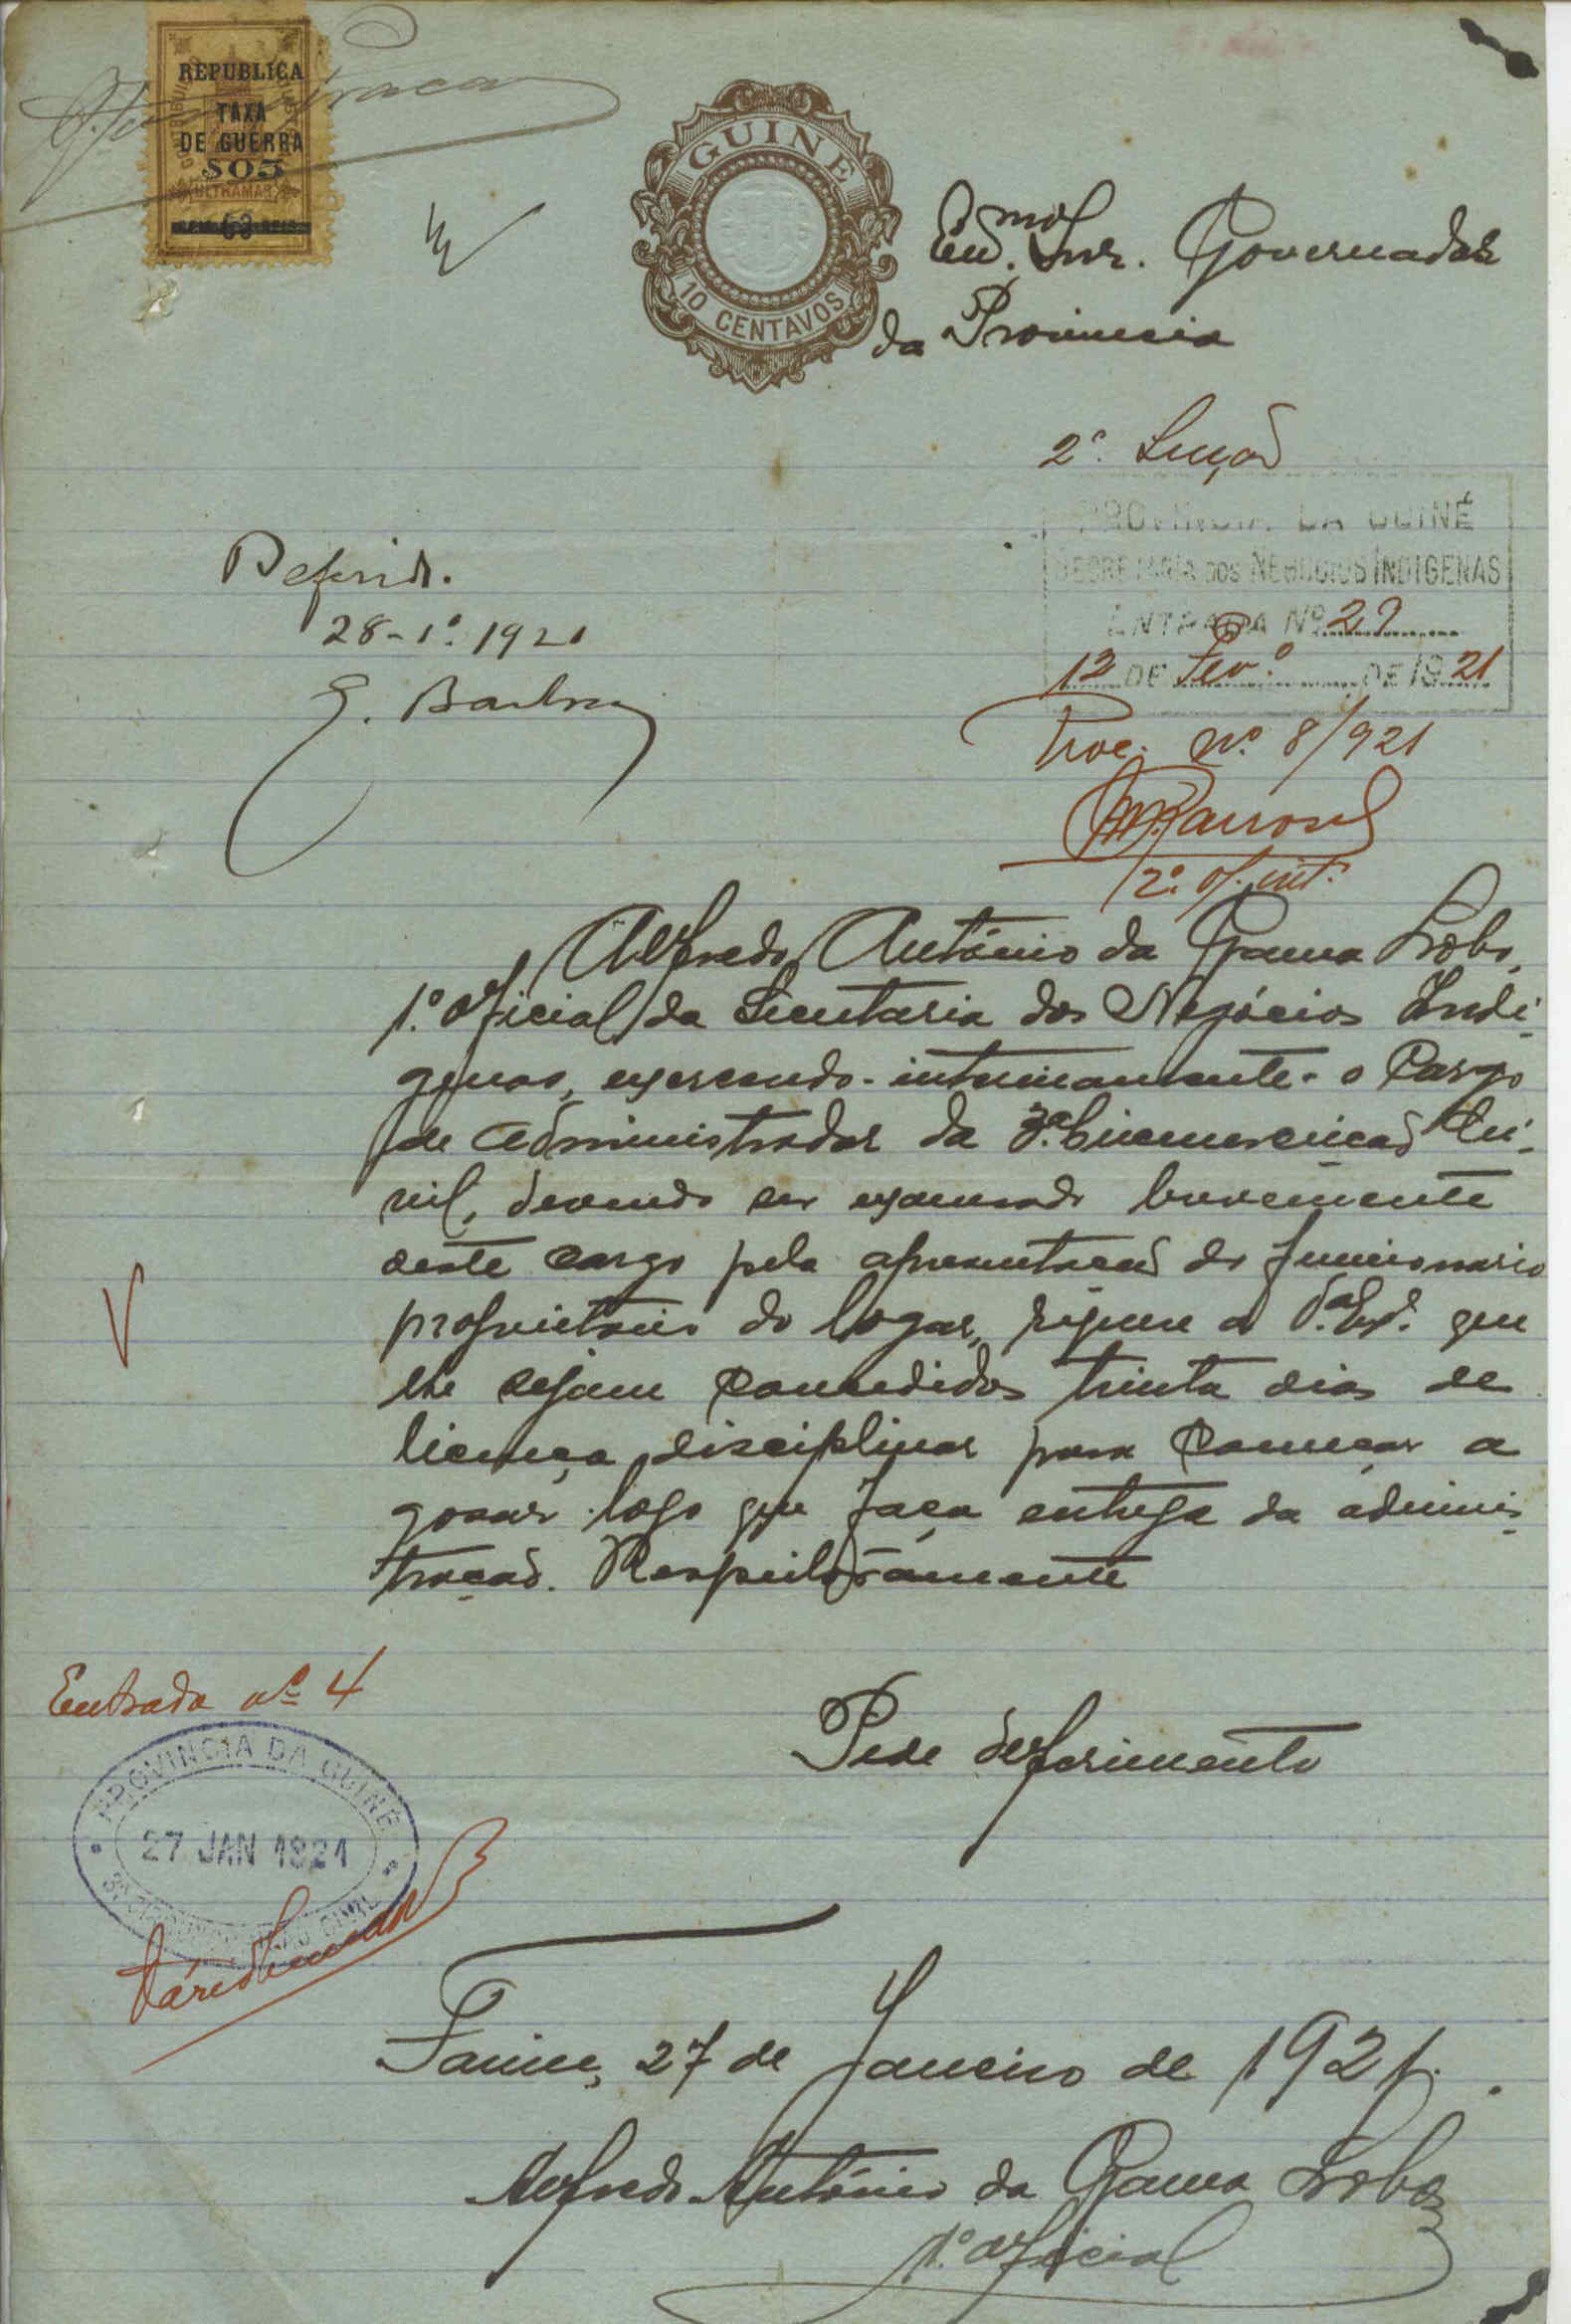 REPUBLICA
TAXA
DE GUERRA
$05
ULTRAMAR
GUINÉ
10 CENTAVOS
Exmo. Snr. Governador
da Provincia
2ª. Secção
PROVINCIA DA GUINÉ
SECRETARIA DOS NEGOCIOS INDIGENAS
ENTRADA Nº 29
12 DE Fevº. DE 1921
Proc. nº. 8/921
2º. of. int.
Deferido.
28-1º.1921
Alfredo António da Gama Lobo,
1º. oficial da Secretaria dos Negócios Indi-
genas, exercendo-interinamente-o Cargo
de Administrador da 3ª. Circunscrição Ci-
vil, devendo ser exonerado brevemente
deste cargo pela apresentação do funcionario
proprietario do logar, requere a V.ª Ex.ª que
lhe sejam concedidos trinta dias de
licença disciplinar para começar a
gosar logo que faça entrega da adminis-
tração. Respeitosamente
Entrada nº 4
Pede deferimento
PROVINCIA DA GUINÉ
27 JAN 1921
3ª CIRCUNSCRIÇÃO CIVIL
Farim, 27 de Janeiro de 1921.
Alfredo António da Gama Lobo
1º. oficial